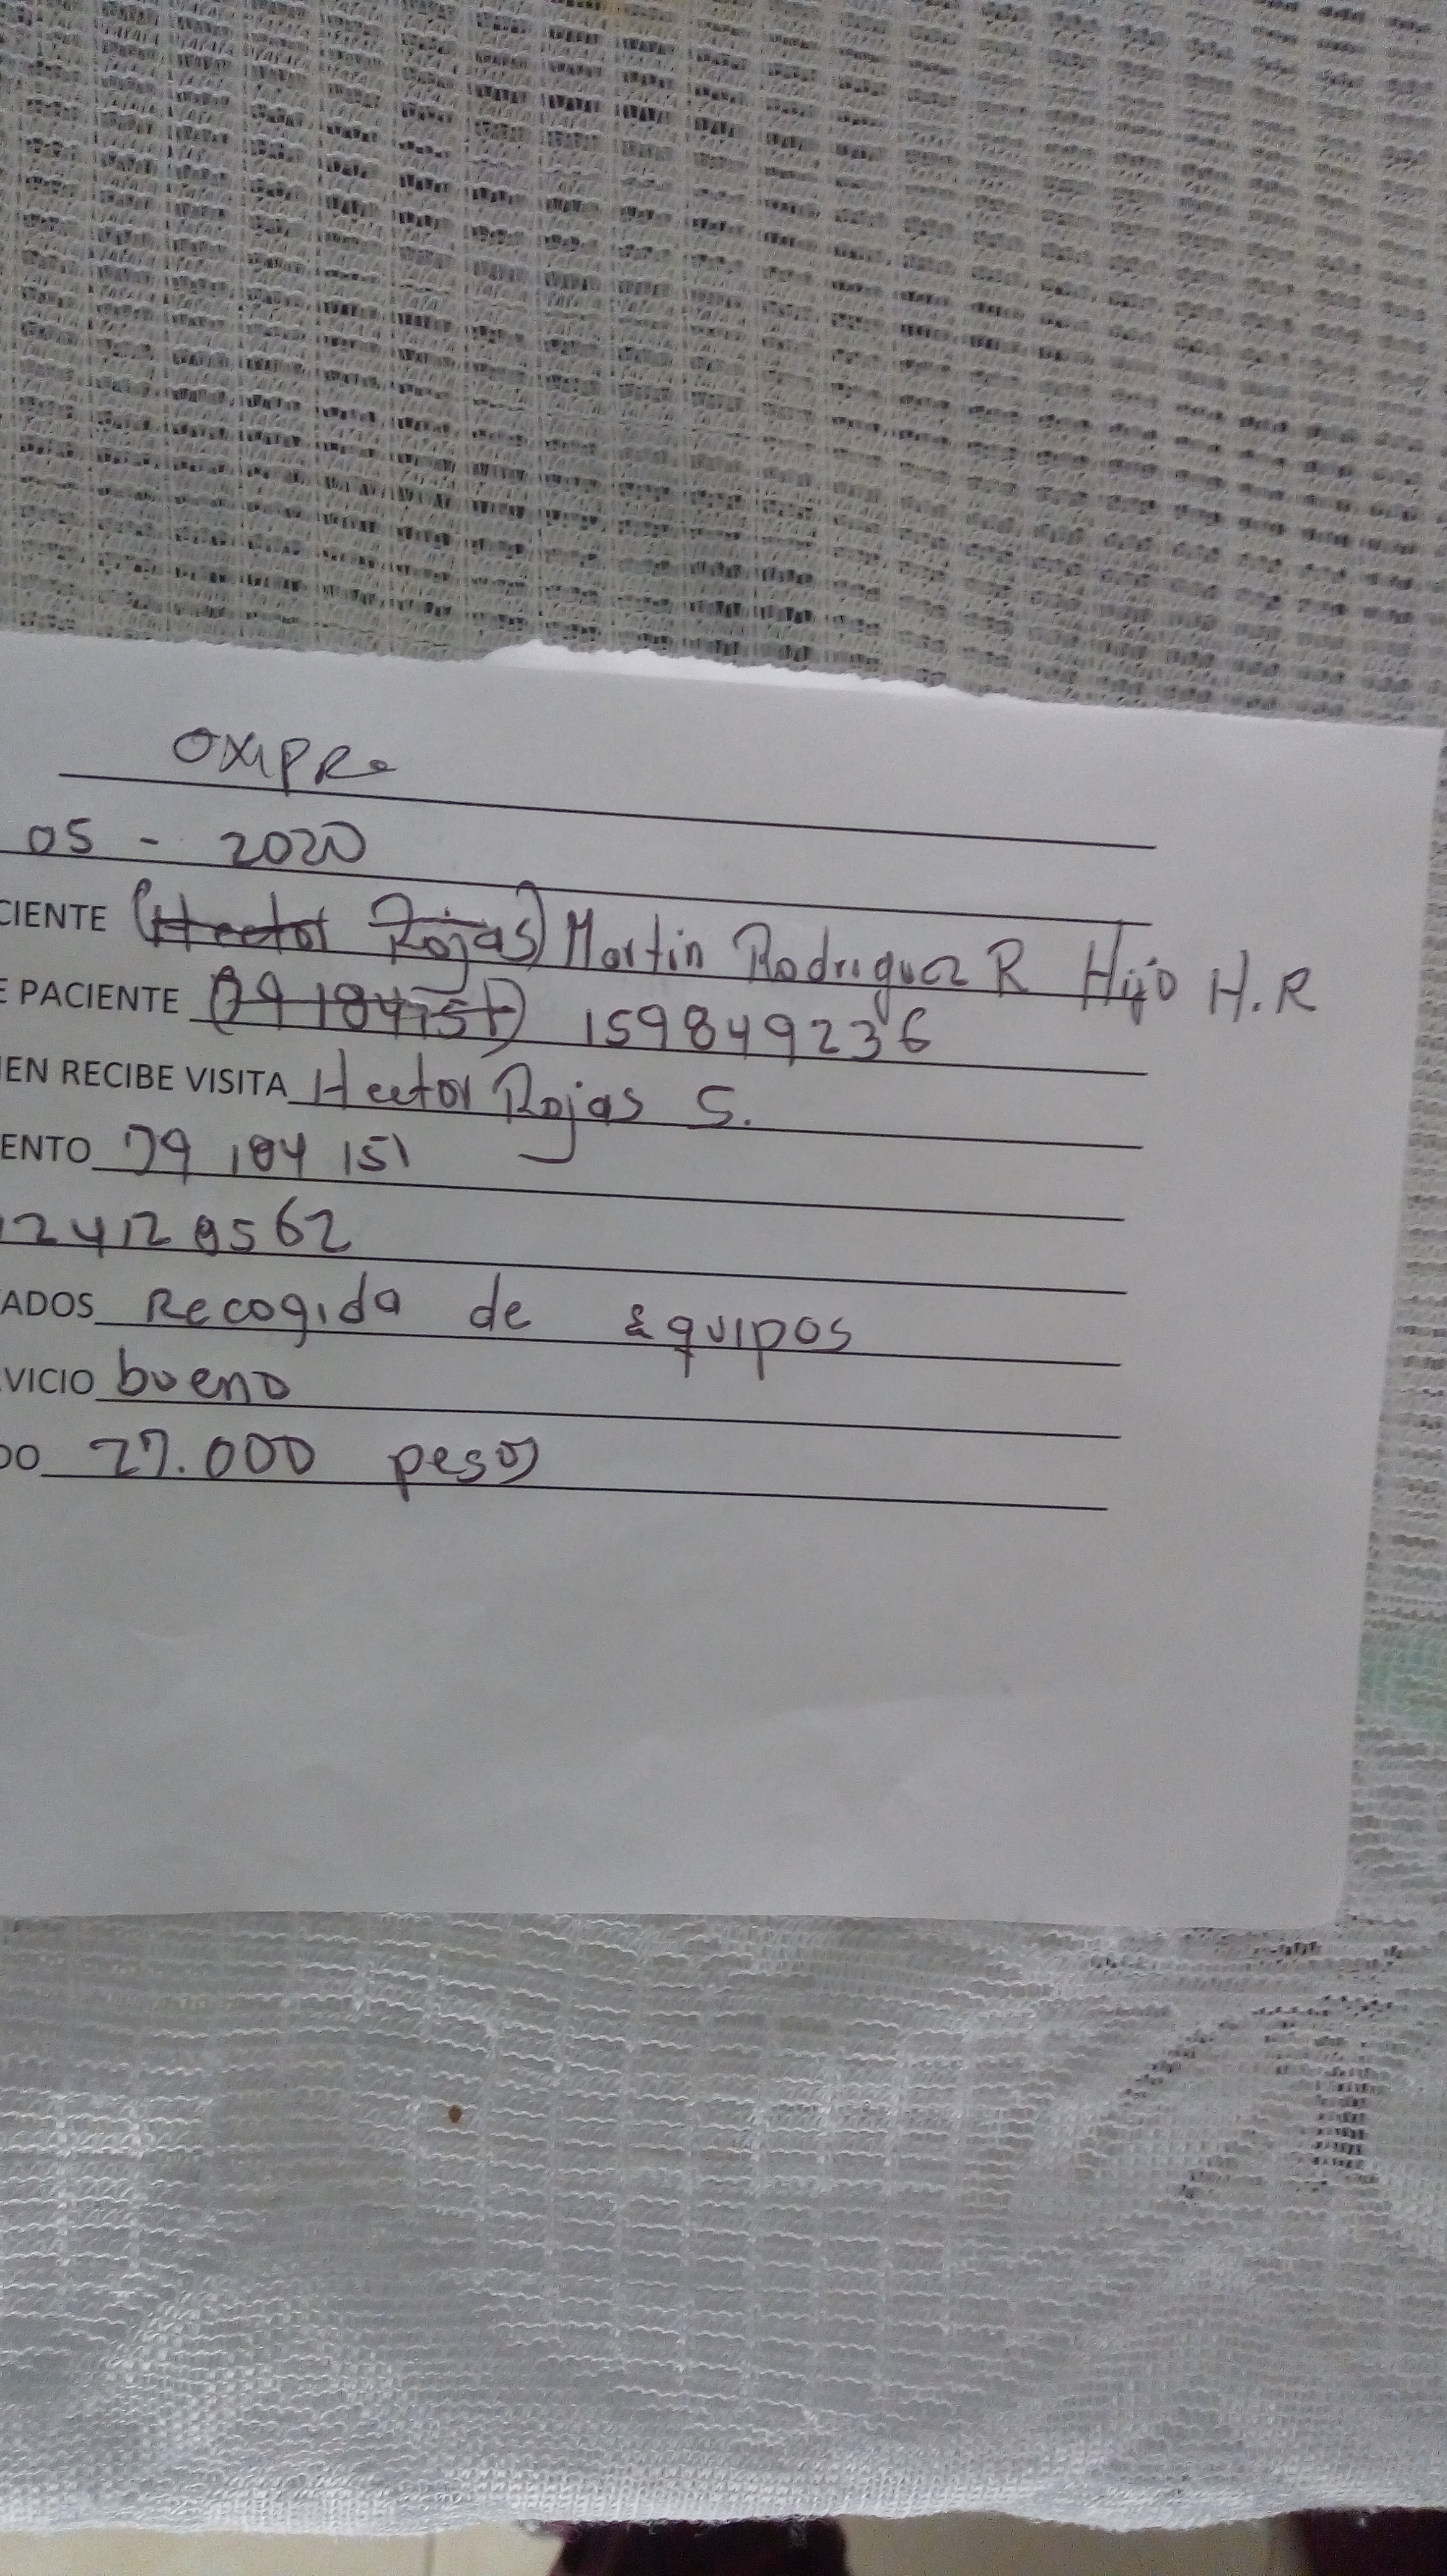 OXIPRO
05 - 2020
CIENTE (Hector Rojas) Martin Rodriguez R Hijo H.R
E PACIENTE (79184151) 159849236
EN RECIBE VISITA Hector Rojas S.
ENTO 79 184 151
24128562
ADOS Recogida de Equipos
VICIO bueno
DO 27.000 pesos